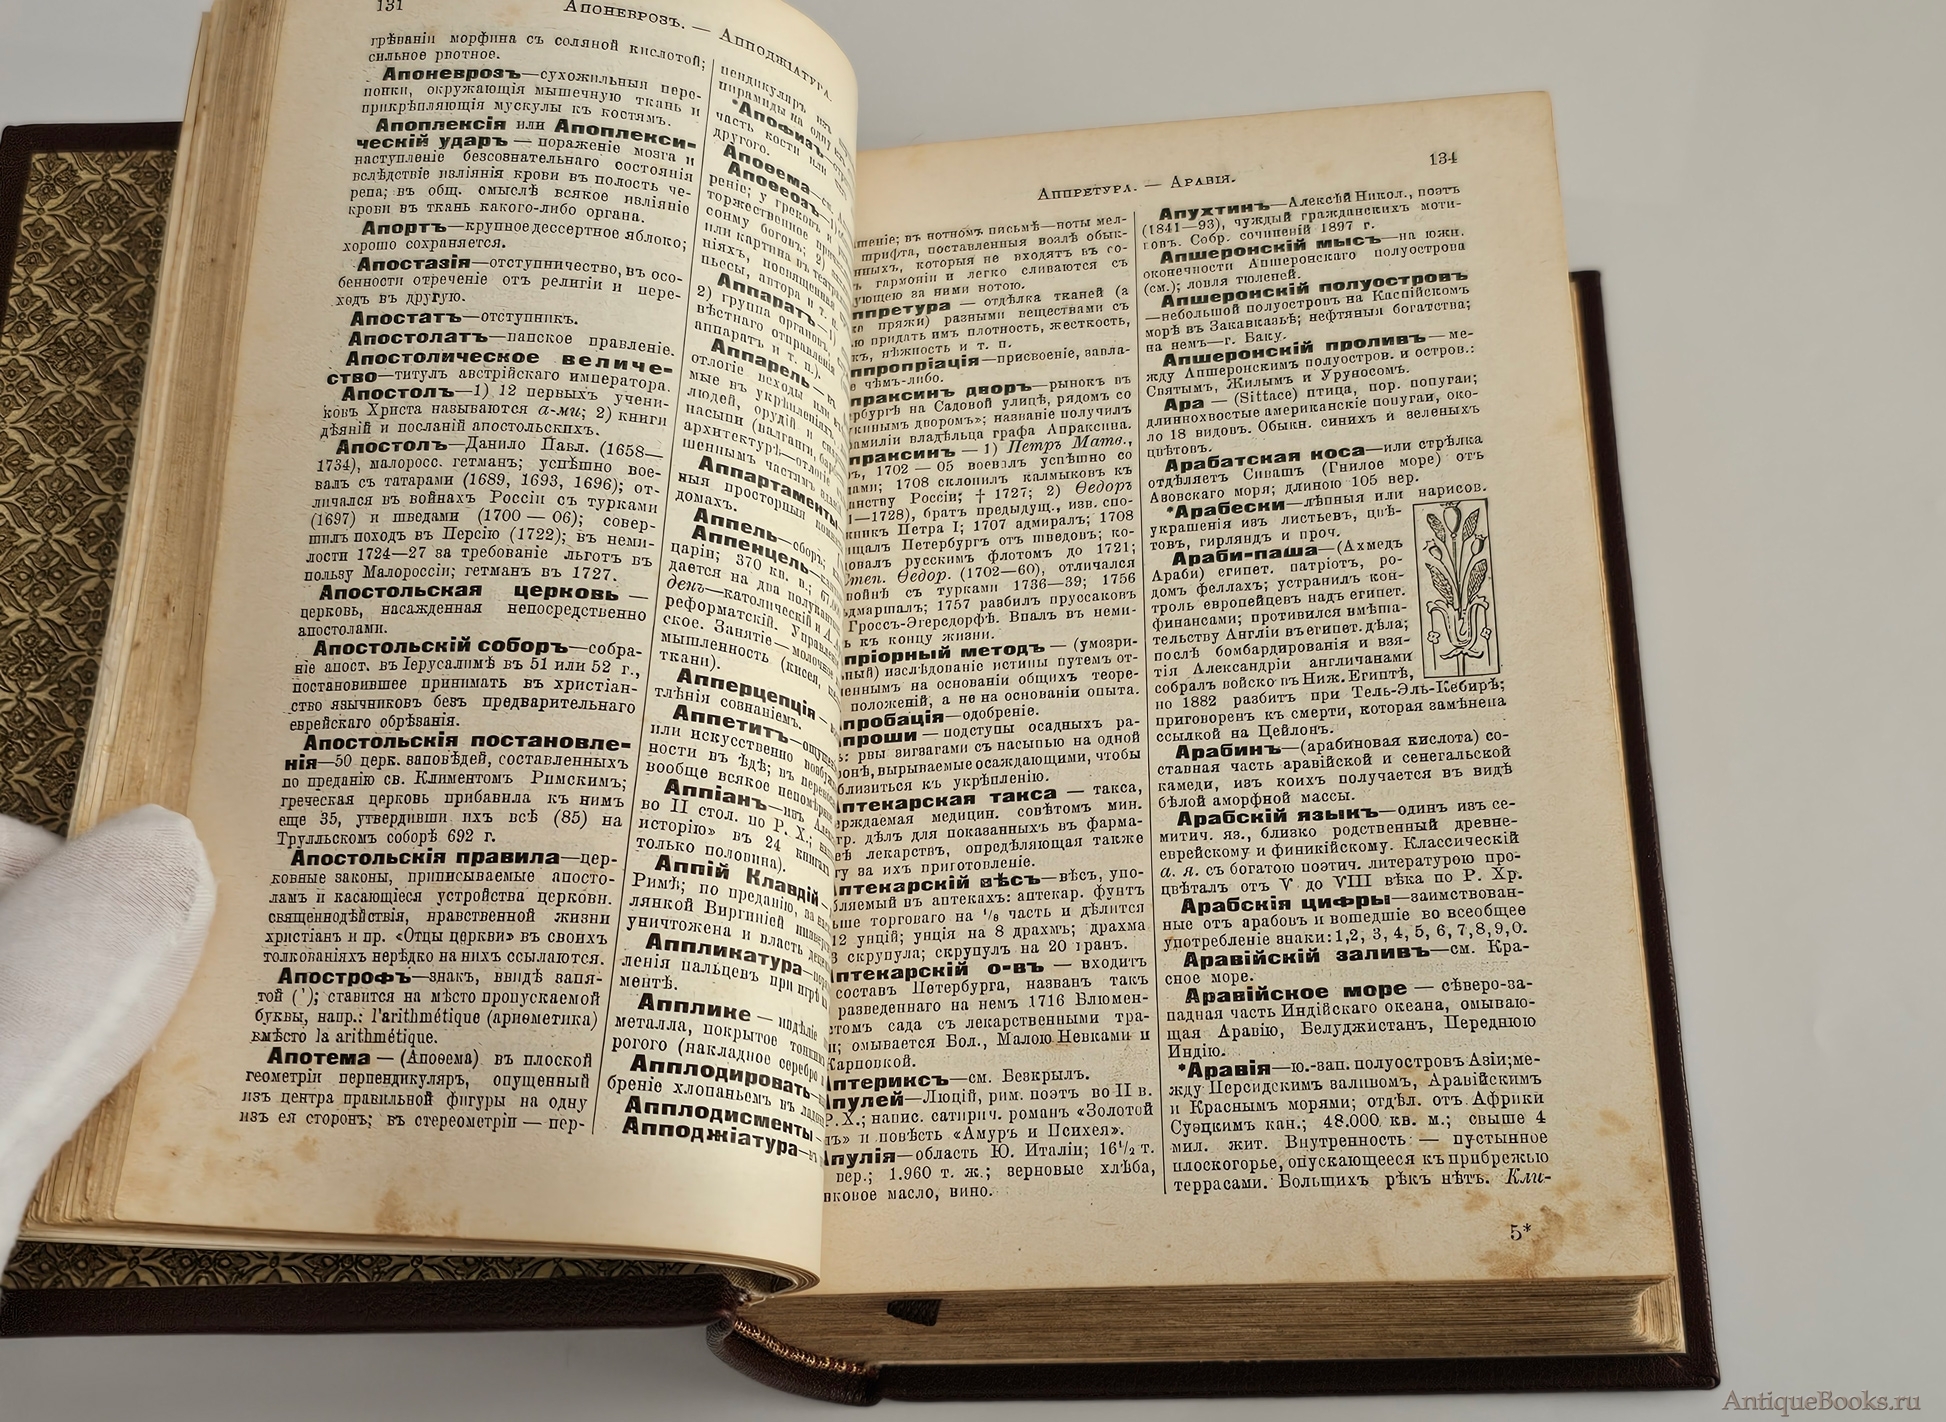 131
Апоневрозъ. — Апподжіатура.
грѣваніи морфина съ соляной кислотой;
сильное рвотное.
Апоневрозъ—сухожильныя пере-
понки, окружающія мышечную ткань и
прикрѣпляющія мускулы къ костямъ.
Апоплексія или Апоплекси-
ческій ударъ — пораженіе мозга и
наступленіе безсознательнаго состоянія
вслѣдствіе изліянія крови въ полость че-
репа; въ общ. смыслѣ всякое изліяніе
крови въ ткань какого-либо органа.
Апортъ—крупное дессертное яблоко;
хорошо сохраняется.
Апостазія—отступничество, въ осо-
бенности отреченіе отъ религіи и пере-
ходъ въ другую.
Апостатъ—отступникъ.
Апостолатъ—папское правленіе.
Апостолическое величе-
ство—титулъ австрійскаго императора.
Апостолъ—1) 12 первыхъ учени-
ковъ Христа называются а-ми; 2) книги
дѣяній и посланій апостольскихъ.
Апостолъ—Данило Павл. (1658—
1734), малоросс. гетманъ; успѣшно вое-
валъ съ татарами (1689, 1693, 1696); от-
личался въ войнахъ Россіи съ турками
(1697) и шведами (1700 — 06); совер-
шилъ походъ въ Персію (1722); въ неми-
лости 1724—27 за требованіе льготъ въ
пользу Малороссіи; гетманъ въ 1727.
Апостольская церковь —
церковь, насажденная непосредственно
апостолами.
Апостольскій соборъ—собра-
ніе апост. въ Іерусалимѣ въ 51 или 52 г.,
постановившее принимать въ христіан-
ство язычниковъ безъ предварительнаго
еврейскаго обрѣзанія.
Апостольскія постановле-
нія—50 церк. заповѣдей, составленныхъ
по преданію св. Климентомъ Римскимъ;
греческая церковь прибавила къ нимъ
еще 35, утвердивши ихъ всѣ (85) на
Трулльскомъ соборѣ 692 г.
Апостольскія правила—цер-
ковные законы, приписываемые апосто-
ламъ и касающіеся устройства церковн.
священнодѣйствія, нравственной жизни
христіанъ и пр. «Отцы церкви» въ своихъ
толкованіяхъ нерѣдко на нихъ ссылаются.
Апострофъ—знакъ, ввидѣ запя-
той ('); ставится на мѣсто пропускаемой
буквы, напр.: l'arithmétique (ариѳметика)
вмѣсто la arithmétique.
Апотема — (Апоѳема) въ плоской
геометріи перпендикуляръ, опущенный
изъ центра правильной фигуры на одну
изъ ея сторонъ; въ стереометріи — пер-
пендикуляръ
пирамиды на одну
*Апофизъ
часть кости или
другого.
Апоѳема—см.
Апоѳеозъ—1)
реніе; у грековъ и
торжественное
сонму боговъ; 2)
или картина въ театрал
ніяхъ, посвященная
пьесы, автора и т. п.
Аппаратъ—1)
2) группа органовъ,
вѣстнаго отправленія
аппаратъ и т. п.).
Аппарель—въ
отлогіе всходы или
мые въ укрѣпленіяхъ
людей, орудій и
насыпи (валганги, барбеты
архитектурѣ—отлогіе
шеннымъ частямъ зданія
Аппартаменты
ныя просторныя комнаты
домахъ.
Аппель—сборъ;
Аппенцель—кантонъ
царіи; 370 кв. в.; 67,000
дается на два полукантона
денъ—католическій и А.
реформатскій. Управленіе
ское. Занятіе—молочное
мышленность (кисея,
ткани).
Апперцепція—
тлѣнія сознаніемъ.
Аппетитъ—ощущеніе
или искусственно возбужд
ности въ ѣдѣ; въ переносн
вообще всякое непомѣрное
Аппіанъ—изъ Алекс
во II стол. по Р. Х.;
исторію» въ 24 книгахъ
только половина).
Аппій Клавдій—
Римѣ; по преданію, за
лянкой Виргиніей
уничтожена и власть
Аппликатура—
ленія пальцевъ при игрѣ на
ментѣ.
Апплике — издѣліе
металла, покрытое тонкимъ
рогого (накладное серебро
Апплодировать—
бреніе хлопаньемъ въ ладоши
Апплодисменты—
Апподжіатура—въ
Аппретура. — Аравія.
134
шеніе; въ нотномъ письмѣ—ноты мел-
шрифта, поставленныя возлѣ обык-
нныхъ, которыя не входятъ въ со-
ъ гармоніи и легко сливаются съ
ующею за ними нотою.
ппретура — отдѣлка тканей (а
о пряжи) разными веществами съ
ю придать имъ плотность, жесткость,
къ, нѣжность и т. п.
ппропріація—присвоеніе, завла-
е чѣмъ-либо.
праксинъ дворъ—рынокъ въ
ербургѣ на Садовой улицѣ, рядомъ со
инымъ дворомъ»; названіе получилъ
амиліи владѣльца графа Апраксина.
праксинъ — 1) Петръ Матв.,
ъ, 1702 — 05 воевалъ успѣшно со
ами; 1708 склонилъ калмыковъ къ
анству Россіи; † 1727; 2) Ѳедоръ
1—1728), братъ предыдущ., изв. спо-
никъ Петра I; 1707 адмиралъ; 1708
щалъ Петербургъ отъ шведовъ; ко-
овалъ русскимъ флотомъ до 1721;
Степ. Ѳедор. (1702—60), отличался
войнѣ съ турками 1736—39; 1756
дмаршалъ; 1757 разбилъ пруссаковъ
Гроссъ-Эгерсдорфѣ. Впалъ въ неми-
ь къ концу жизни.
пріорный методъ — (умозри-
ный) наслѣдованіе истины путемъ от-
еннымъ на основаніи общихъ теоре-
положеній, а не на основаніи опыта.
пробація—одобреніе.
проши — подступы осадныхъ ра-
ъ: рвы зигзагами съ насыпью на одной
онѣ, вырываемые осаждающими, чтобы
близиться къ укрѣпленію.
птекарская такса — такса,
рждаемая медицин. совѣтомъ мин.
тр. дѣлъ для показанныхъ въ фарма-
еѣ лекарствъ, опредѣляющая также
ту за ихъ приготовленіе.
птекарскій вѣсъ—вѣсъ, упо-
бляемый въ аптекахъ: аптекар. фунтъ
ьше торговаго на 1/8 часть и дѣлится
12 унцій; унція на 8 драхмъ; драхма
3 скрупула; скрупулъ на 20 гранъ.
птекарскій о-въ — входитъ
составъ Петербурга, названъ такъ
разведеннаго на немъ 1716 Блюмен-
стомъ сада съ лекарственными тра-
и; омывается Бол., Малою Невками и
Карповкой.
птериксъ—см. Безкрылъ.
пулей—Люцій, рим. поэтъ во II в.
Р. Х.; напис. сатирич. романъ «Золотой
лъ» и повѣсть «Амуръ и Психея».
пулія—область Ю. Италіи; 16½ т.
вер.; 1.960 т. ж.; зерновые хлѣба,
иковое масло, вино.
Апухтинъ—Алексѣй Никол., поэтъ
(1841—93), чуждый гражданскихъ моти-
вовъ. Собр. сочиненій 1897 г.
Апшеронскій мысъ—на южн.
оконечности Апшеронскаго полуострова
(см.); ловля тюленей.
Апшеронскій полуостровъ
—небольшой полуостровъ на Каспійскомъ
морѣ въ Закавказьѣ; нефтяныя богатства;
на немъ—г. Баку.
Апшеронскій проливъ—ме-
жду Апшеронскимъ полуостров. и остров.:
Святымъ, Жилымъ и Уруносомъ.
Ара — (Sittace) птица, пор. попугаи;
длиннохвостые американскіе попугаи, око-
ло 18 видовъ. Обыкн. синихъ и зеленыхъ
цвѣтовъ.
Арабатская коса—или стрѣлка
отдѣляетъ Сивашъ (Гнилое море) отъ
Азовскаго моря; длиною 105 вер.
*Арабески—лѣпныя или нарисов.
украшенія изъ листьевъ, цвѣ-
товъ, гирляндъ и проч.
Араби-паша—(Ахмедъ
Араби) египет. патріотъ, ро-
домъ феллахъ; устранилъ кон-
троль европейцевъ надъ египет.
финансами; противился вмѣша-
тельству Англіи въ египет. дѣла;
послѣ бомбардированія и взя-
тія Александріи англичанами
собралъ войско въ Ниж. Египтѣ,
но 1882 разбитъ при Тель-Эль-Кебирѣ;
приговоренъ къ смерти, которая замѣнена
ссылкой на Цейлонъ.
Арабинъ—(арабиновая кислота) со-
ставная часть аравійской и сенегальской
камеди, изъ коихъ получается въ видѣ
бѣлой аморфной массы.
Арабскій языкъ—одинъ изъ се-
митич. яз., близко родственный древне-
еврейскому и финикійскому. Классическій
а. я. съ богатою поэтич. литературою про-
цвѣталъ отъ V до VIII вѣка по Р. Хр.
Арабскія цифры—заимствован-
ные отъ арабовъ и вошедшіе во всеобщее
употребленіе знаки: 1, 2, 3, 4, 5, 6, 7, 8, 9, 0.
Аравійскій заливъ—см. Кра-
сное море.
Аравійское море — сѣверо-за-
падная часть Индійскаго океана, омываю-
щая Аравію, Белуджистанъ, Переднюю
Индію.
*Аравія—ю.-зап. полуостровъ Азіи; ме-
жду Персидскимъ заливомъ, Аравійскимъ
и Краснымъ морями; отдѣл. отъ Африки
Суэцкимъ кан.; 48.000 кв. м.; свыше 4
мил. жит. Внутренность — пустынное
плоскогорье, опускающееся къ прибрежью
террасами. Большихъ рѣкъ нѣтъ. Кли-
5*
AntiqueBooks.ru